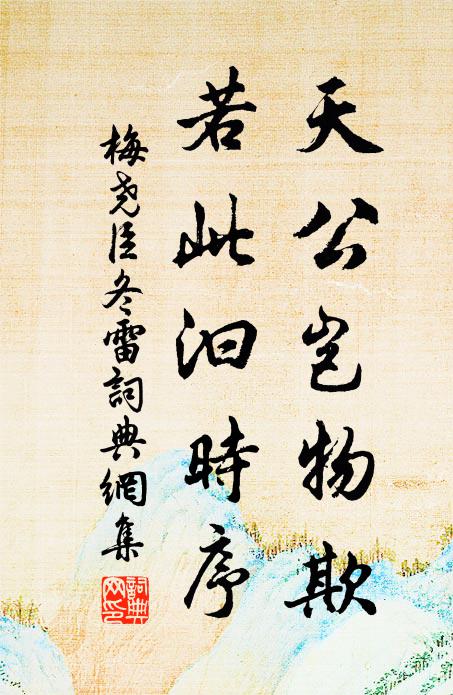 天公岂物欺
若此汩時序
梅尧臣冬雷詞典網集
詞典网印